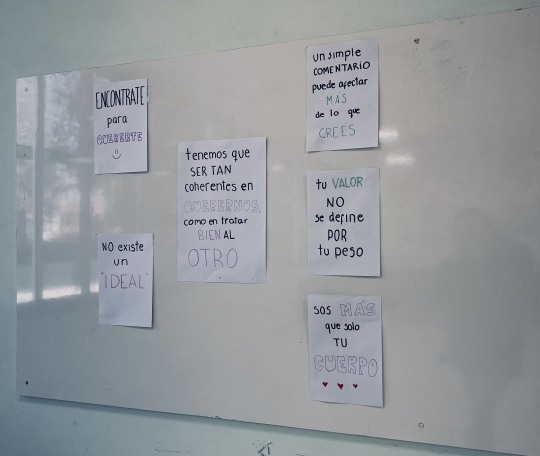 ENCONTRATE
para
QUERERTE
NO existe
un
"IDEAL"
tenemos que
SER TAN
coherentes en
QUERERNOS,
como en tratar
BIEN AL
OTRO
un simple
COMENTARIO
puede afectar
MAS
de lo que
CREES
tu VALOR
NO
se define
POR
tu peso
SOS MÁS
que solo
TU
CUERPO